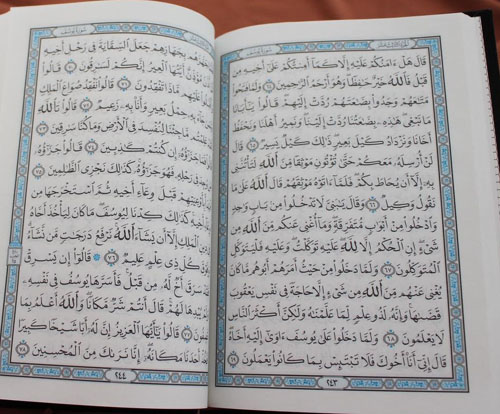 قَالَ هَلْ ءَامَنُكُمْ عَلَيْهِ إِلَّا كَمَآ أَمِنتُكُمْ عَلَىٰٓ أَخِيهِ مِن
قَبْلُ فَٱللَّهُ خَيْرٌ حَٰفِظًا وَهُوَ أَرْحَمُ ٱلرَّٰحِمِينَ ٦٤ وَلَمَّا فَتَحُوا۟
مَتَٰعَهُمْ وَجَدُوا۟ بِضَٰعَتَهُمْ رُدَّتْ إِلَيْهِمْ قَالُوا۟ يَٰٓأَبَانَا
مَا نَبْغِى هَٰذِهِۦ بِضَٰعَتُنَا رُدَّتْ إِلَيْنَا وَنَمِيرُ أَهْلَنَا وَنَحْفَظُ
أَخَانَا وَنَزْدَادُ كَيْلَ بَعِيرٍ ذَٰلِكَ كَيْلٌ يَسِيرٌ ٦٥ قَالَ
لَنْ أُرْسِلَهُۥ مَعَكُمْ حَتَّىٰ تُؤْتُونِ مَوْثِقًا مِّنَ ٱللَّهِ لَتَأْتُنَّنِى
بِهِۦٓ إِلَّآ أَن يُحَاطَ بِكُمْ فَلَمَّآ ءَاتَوْهُ مَوْثِقَهُمْ قَالَ ٱللَّهُ عَلَىٰ مَا
نَقُولُ وَكِيلٌ ٦٦ وَقَالَ يَٰبَنِىَّ لَا تَدْخُلُوا۟ مِنۢ بَابٍ وَٰحِدٍ
وَٱدْخُلُوا۟ مِنْ أَبْوَٰبٍ مُّتَفَرِّقَةٍ وَمَآ أُغْنِى عَنكُم مِّنَ ٱللَّهِ مِن
شَىْءٍ إِنِ ٱلْحُكْمُ إِلَّا لِلَّهِ عَلَيْهِ تَوَكَّلْتُ وَعَلَيْهِ فَلْيَتَوَكَّلِ
ٱلْمُتَوَكِّلُونَ ٦٧ وَلَمَّا دَخَلُوا۟ مِنْ حَيْثُ أَمَرَهُمْ أَبُوهُم مَّا كَانَ
يُغْنِى عَنْهُم مِّنَ ٱللَّهِ مِن شَىْءٍ إِلَّا حَاجَةً فِى نَفْسِ يَعْقُوبَ
قَضَىٰهَا وَإِنَّهُۥ لَذُو عِلْمٍ لِّمَا عَلَّمْنَٰهُ وَلَٰكِنَّ أَكْثَرَ ٱلنَّاسِ
لَا يَعْلَمُونَ ٦٨ وَلَمَّا دَخَلُوا۟ عَلَىٰ يُوسُفَ ءَاوَىٰٓ إِلَيْهِ أَخَاهُ
قَالَ إِنِّىٓ أَنَا۠ أَخُوكَ فَلَا تَبْتَئِسْ بِمَا كَانُوا۟ يَعْمَلُونَ ٦٩
٢٤٣
جَهَّزَهُم بِجَهَازِهِمْ جَعَلَ ٱلسِّقَايَةَ فِى رَحْلِ أَخِيهِ
مُؤَذِّنٌ أَيَّتُهَا ٱلْعِيرُ إِنَّكُمْ لَسَٰرِقُونَ ٧٠ قَالُوا۟
عَلَيْهِم مَّاذَا تَفْقِدُونَ ٧١ قَالُوا۟ نَفْقِدُ صُوَاعَ ٱلْمَلِكِ
جَآءَ بِهِۦ حِمْلُ بَعِيرٍ وَأَنَا۠ بِهِۦ زَعِيمٌ ٧٢ قَالُوا۟ تَٱللَّهِ
مَّا جِئْنَا لِنُفْسِدَ فِى ٱلْأَرْضِ وَمَا كُنَّا سَٰرِقِينَ ٧٣
جَزَٰٓؤُهُۥٓ إِن كُنتُمْ كَٰذِبِينَ ٧٤ قَالُوا۟ جَزَٰٓؤُهُۥ
فِى رَحْلِهِۦ فَهُوَ جَزَٰٓؤُهُۥ كَذَٰلِكَ نَجْزِى ٱلظَّٰلِمِينَ ٧٥
قَبْلَ وِعَآءِ أَخِيهِ ثُمَّ ٱسْتَخْرَجَهَا مِن
أَخِيهِ كَذَٰلِكَ كِدْنَا لِيُوسُفَ مَا كَانَ لِيَأْخُذَ أَخَاهُ
ٱلْمَلِكِ إِلَّآ أَن يَشَآءَ ٱللَّهُ نَرْفَعُ دَرَجَٰتٍ مَّن نَّشَآءُ
كُلِّ ذِى عِلْمٍ عَلِيمٌ ٧٦ قَالُوٓا۟ إِن يَسْرِقْ
أَخٌ لَّهُۥ مِن قَبْلُ فَأَسَرَّهَا يُوسُفُ فِى نَفْسِهِۦ
لَهُمْ قَالَ أَنتُمْ شَرٌّ مَّكَانًا وَٱللَّهُ أَعْلَمُ بِمَا
قَالُوا۟ يَٰٓأَيُّهَا ٱلْعَزِيزُ إِنَّ لَهُۥٓ أَبًا شَيْخًا كَبِيرًا
أَحَدَنَا مَكَانَهُۥٓ إِنَّا نَرَىٰكَ مِنَ ٱلْمُحْسِنِينَ ٧٨
٢٤٤